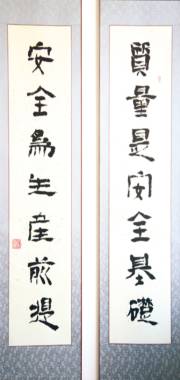 質量是安全基礎
安全為生產前提